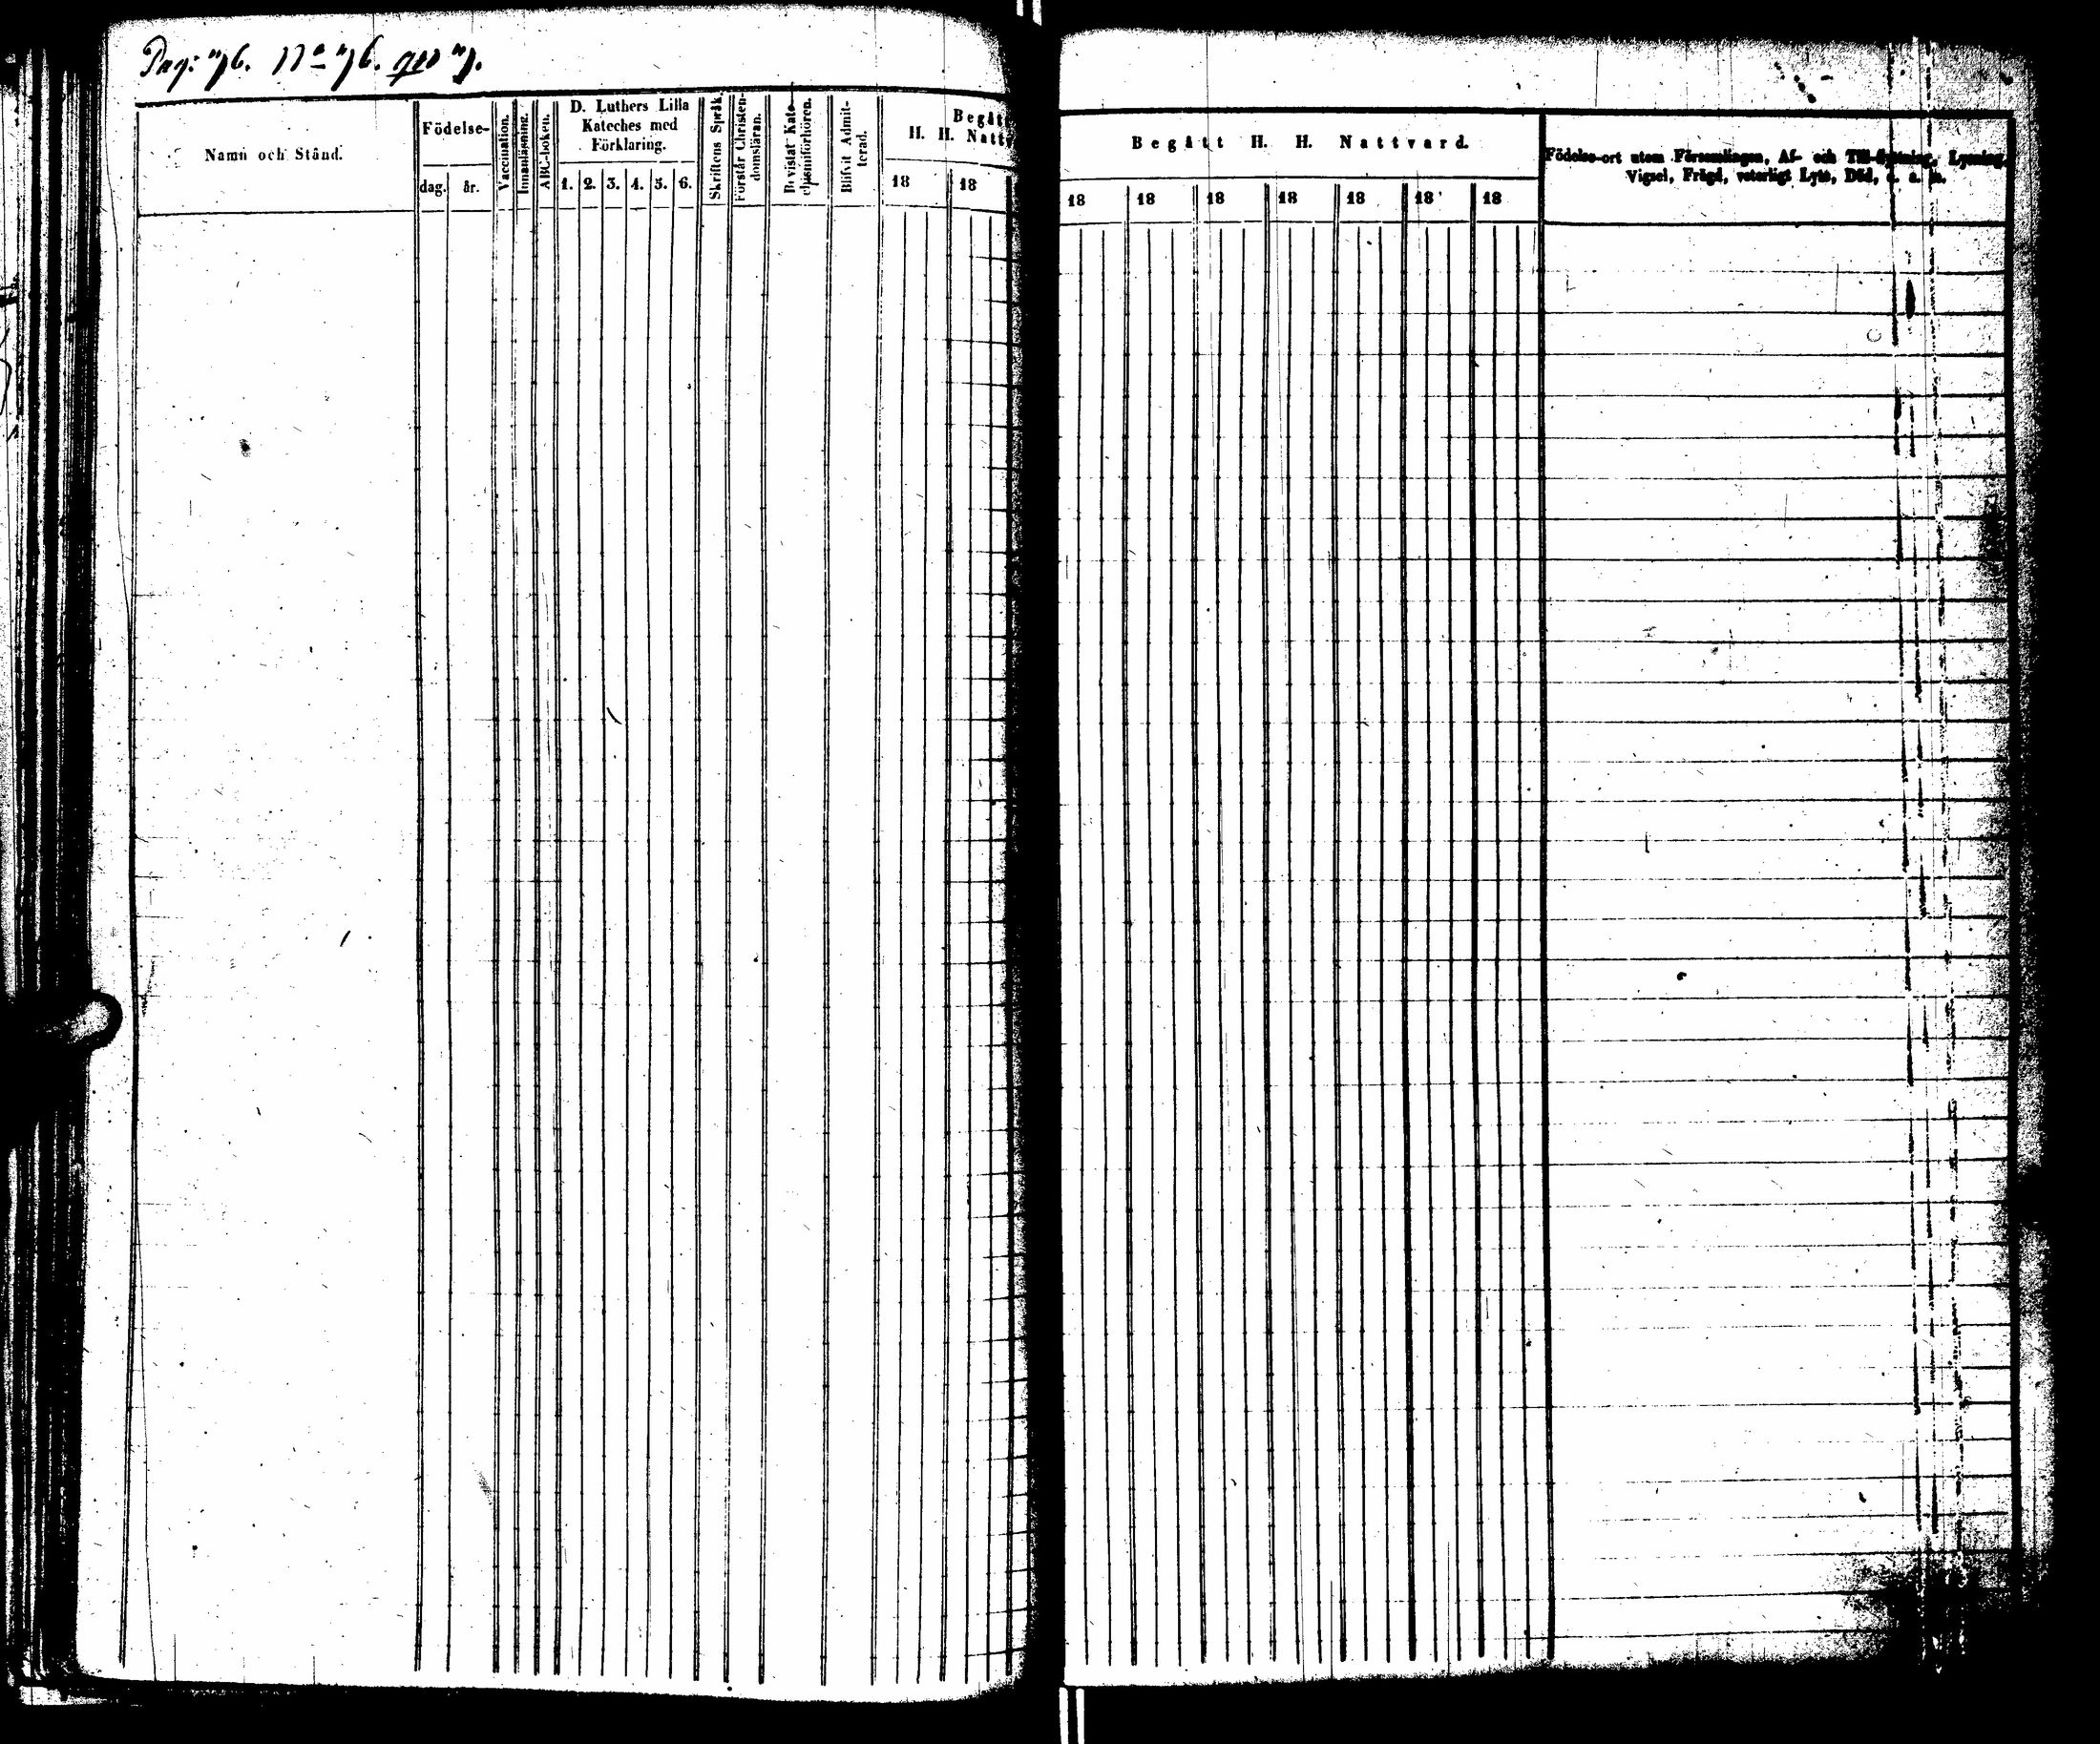 Pag: 76. No 76.
Namn och Stånd.
Födelse-
dag. år.
Vaccination.
Innanläsning.
ABC-boken.
D. Luthers Lilla
Kateches med
Förklaring.
1. 2. 3. 4. 5. 6.
Skriftens Språk.
Förstår Christen-
domsläran.
Bevistat Kate-
chismiförhören.
Blifvit Admit-
terad.
Begått
H. H. Nattv
18 18
Begått H. H. Nattvard.
18 18 18 18 18 18 18
Födelse-ort utom Församlingen, Af- och Till-flyttning, Lysning,
Vigsel, Frägd, veterligt Lyte, Död, o. a. m.